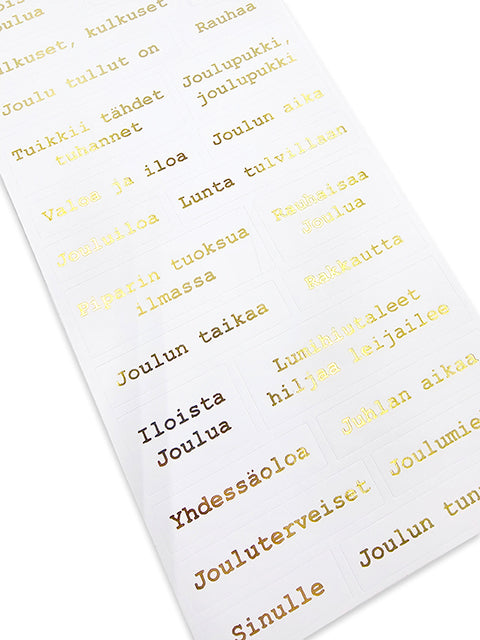 Joulua
kulkuset
Rauhaa
Joulu tullut on
Joulupukki,
joulupukki
Tuikkii tähdet
tuhannet
Joulun aika
Valoa ja iloa
Lunta tulvillaan
Jouluiloa
Rauhaisaa
Joulua
Piparin tuoksua
ilmassa
Rakkautta
Joulun taikaa
Lumihiutaleet
hiljaa leijailee
Iloista
Joulua
Juhlan aikaa
Yhdessäoloa
Jouluterveiset
Joulun
Sinulle